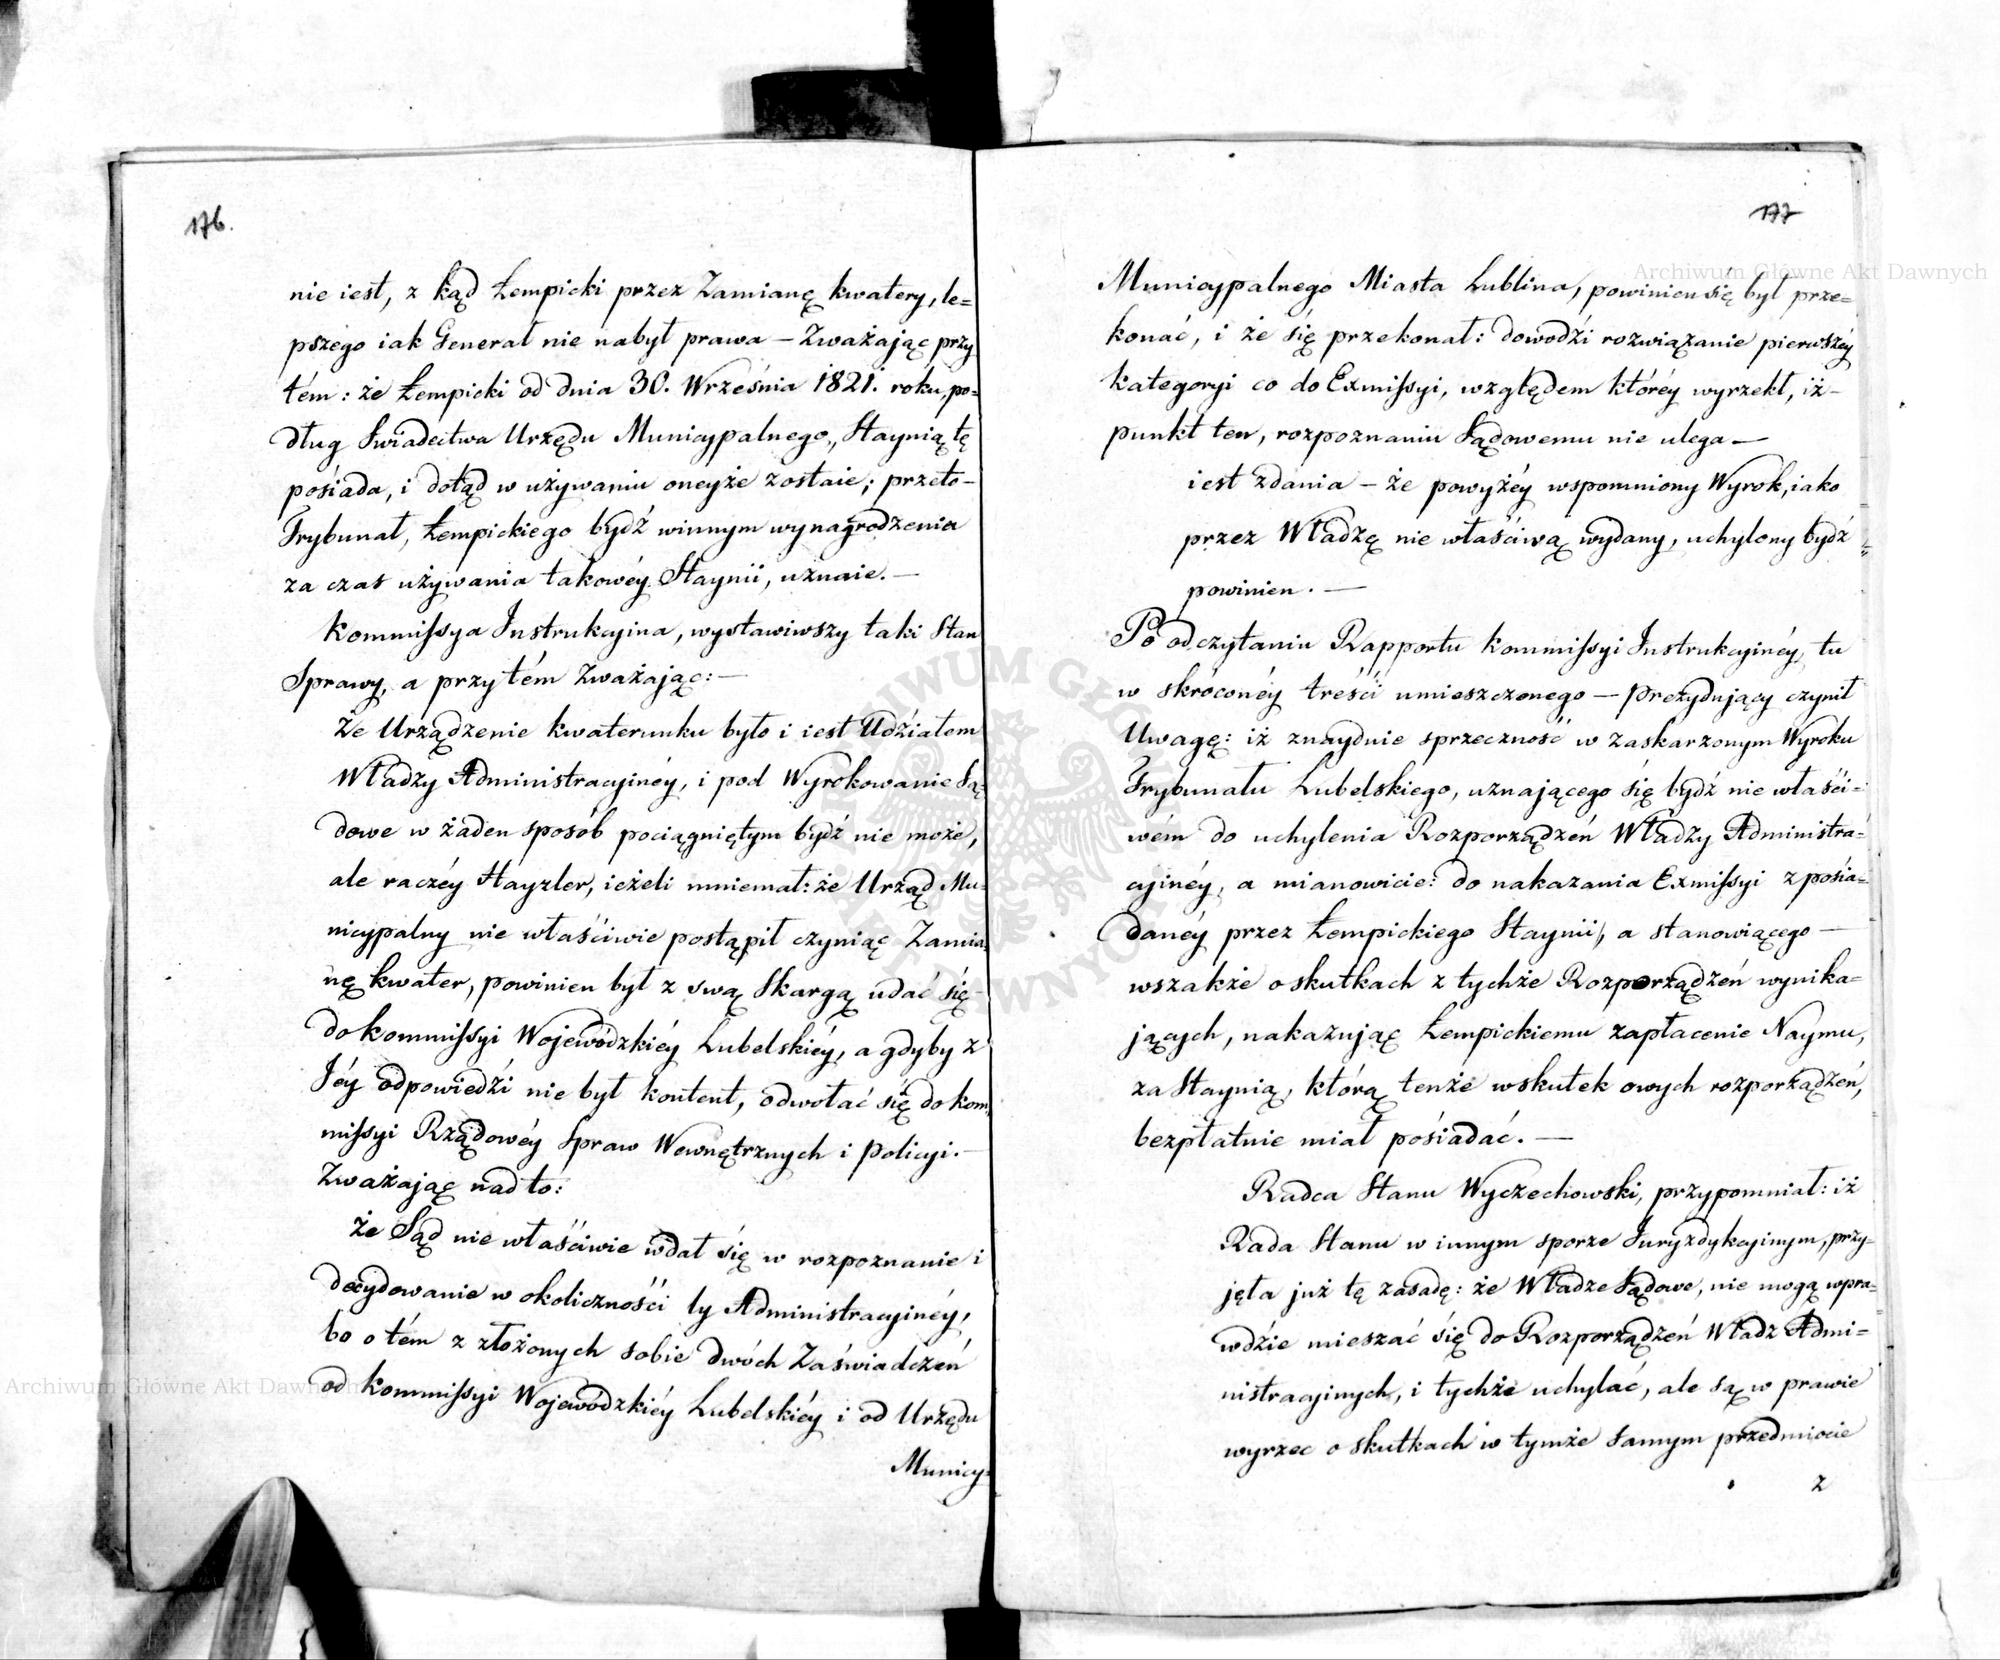 176.
nie iest, z kąd Łempicki przez Zamianę kwatery, le=
pszego iak Generał nie nabył prawa – Zważaiąc przy
tém: że Łempicki od dnia 30. Września 1821. roku, po=
dług Swiadectwa Urzędu Municypalnego, Staynią tę
pośiada, i dotąd w używaniu oneyże zostaie; przeto–
Trybunał, Łempickiego bydź winnym wynagrodzenia
za czas używania takowéy Staynii, uznaie. –
Kommissya Instrukcyina, wystawiwszy taki Stan
Sprawy, a przytém Zważając: –
Że Urządzenie kwaterunku było i iest Udziałem
Władzy Administracyinéy, i pod Wyrokowanie Są=
dowe w żaden sposób pociągniętym bydź nie może,
ale raczéy Hayzler, ieżeli mniemał: że Urząd Mu=
nicypalny nie właściwie postąpił czyniąc Zamia=
nę kwater, powinien był z swą Skargą udać się
do Kommissyi Wojewódzkiéy Lubelskiéy, a gdyby z
Jéy odpowiedźi nie był kontent, odwołać się do Kom=
missyi Rządowéy Spraw Wewnętrznych i Policyi. –
Zważając nadto:
że Sąd nie właściwie wdał się w rozpoznanie i
decydowanie w okoliczności ty Administracyinéy,
bo o tém z złożonych sobie dwóch Zaświadczeń
od Kommissyi Wojewódzkiéy Lubelskiéy i od Urzędu
Municy=
177
Municypalnego Miasta Lublina, powinien się był prze=
konać, i że się przekonał: dowodźi rozwiązanie pierwszéy
kategoryi co do Exmissyi, względem któréy wyrzekł, iż–
punkt ten, rozpoznaniu Sądowemu nie ulega –
iest zdania – że powyżéy wspomniony Wyrok, iako
przez Władzę nie właściwą wydany, uchylony bydź
powinien. –
Po odczytaniu Rapportu Kommissyi Instrukcyinéy, tu
w skróconéy treści umieszczonego – Prezydujący czynił
Uwagę: iż znaydnie sprzeczność w zaskarżonym Wyroku
Trybunału Lubelskiego, uznającego się bydź nie właści=
wém do uchylenia Rozporządzeń Władzy Administra=
cyinéy, a mianowicie: do nakazania Exmissyi z pośia=
danéy przez Łempickiego Staynii, a stanowiącego –
wszakże o skutkach z tychże Rozporządzeń wynika=
jących, nakazując Łempickiemu zapłacenie Naymu,
za Staynią, którą tenże wskutek owych rozporządzeń,
bezpłatnie miał pośiadać. –
Radca Stanu Wyczechowski, przypomniał: iż
Rada Stanu w innym sporze Juryzdykcyinym, przy=
jęta już tę zasadę: że Władze Sądowe, nie mogą wpra=
wdźie mieszać się do Rozporządzeń Władz Admi=
nistracyinych, i tychże uchylać, ale są w prawie
wyrzec o skutkach w tymże samym przedmiocie
z
Archiwum Główne Akt Dawnych
Archiwum Główne Akt Dawnych